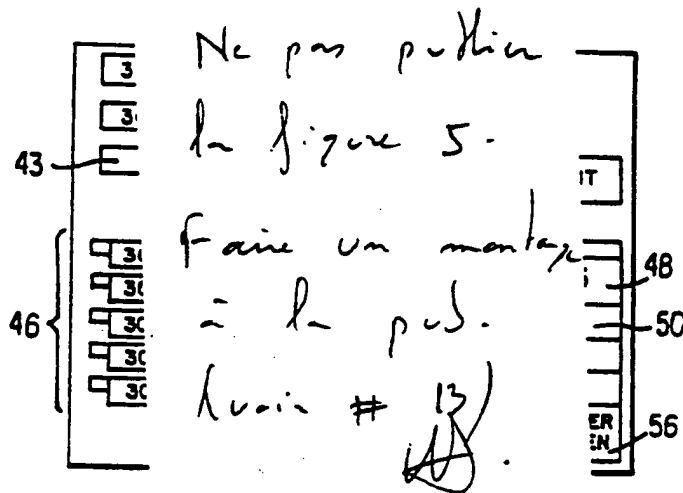 Ne pas publier
la figure 5.
Faire un montage
à la pub.
# 13
3
3
43
IT
30
30
30
30
30
46
48
50
ER
EN
56